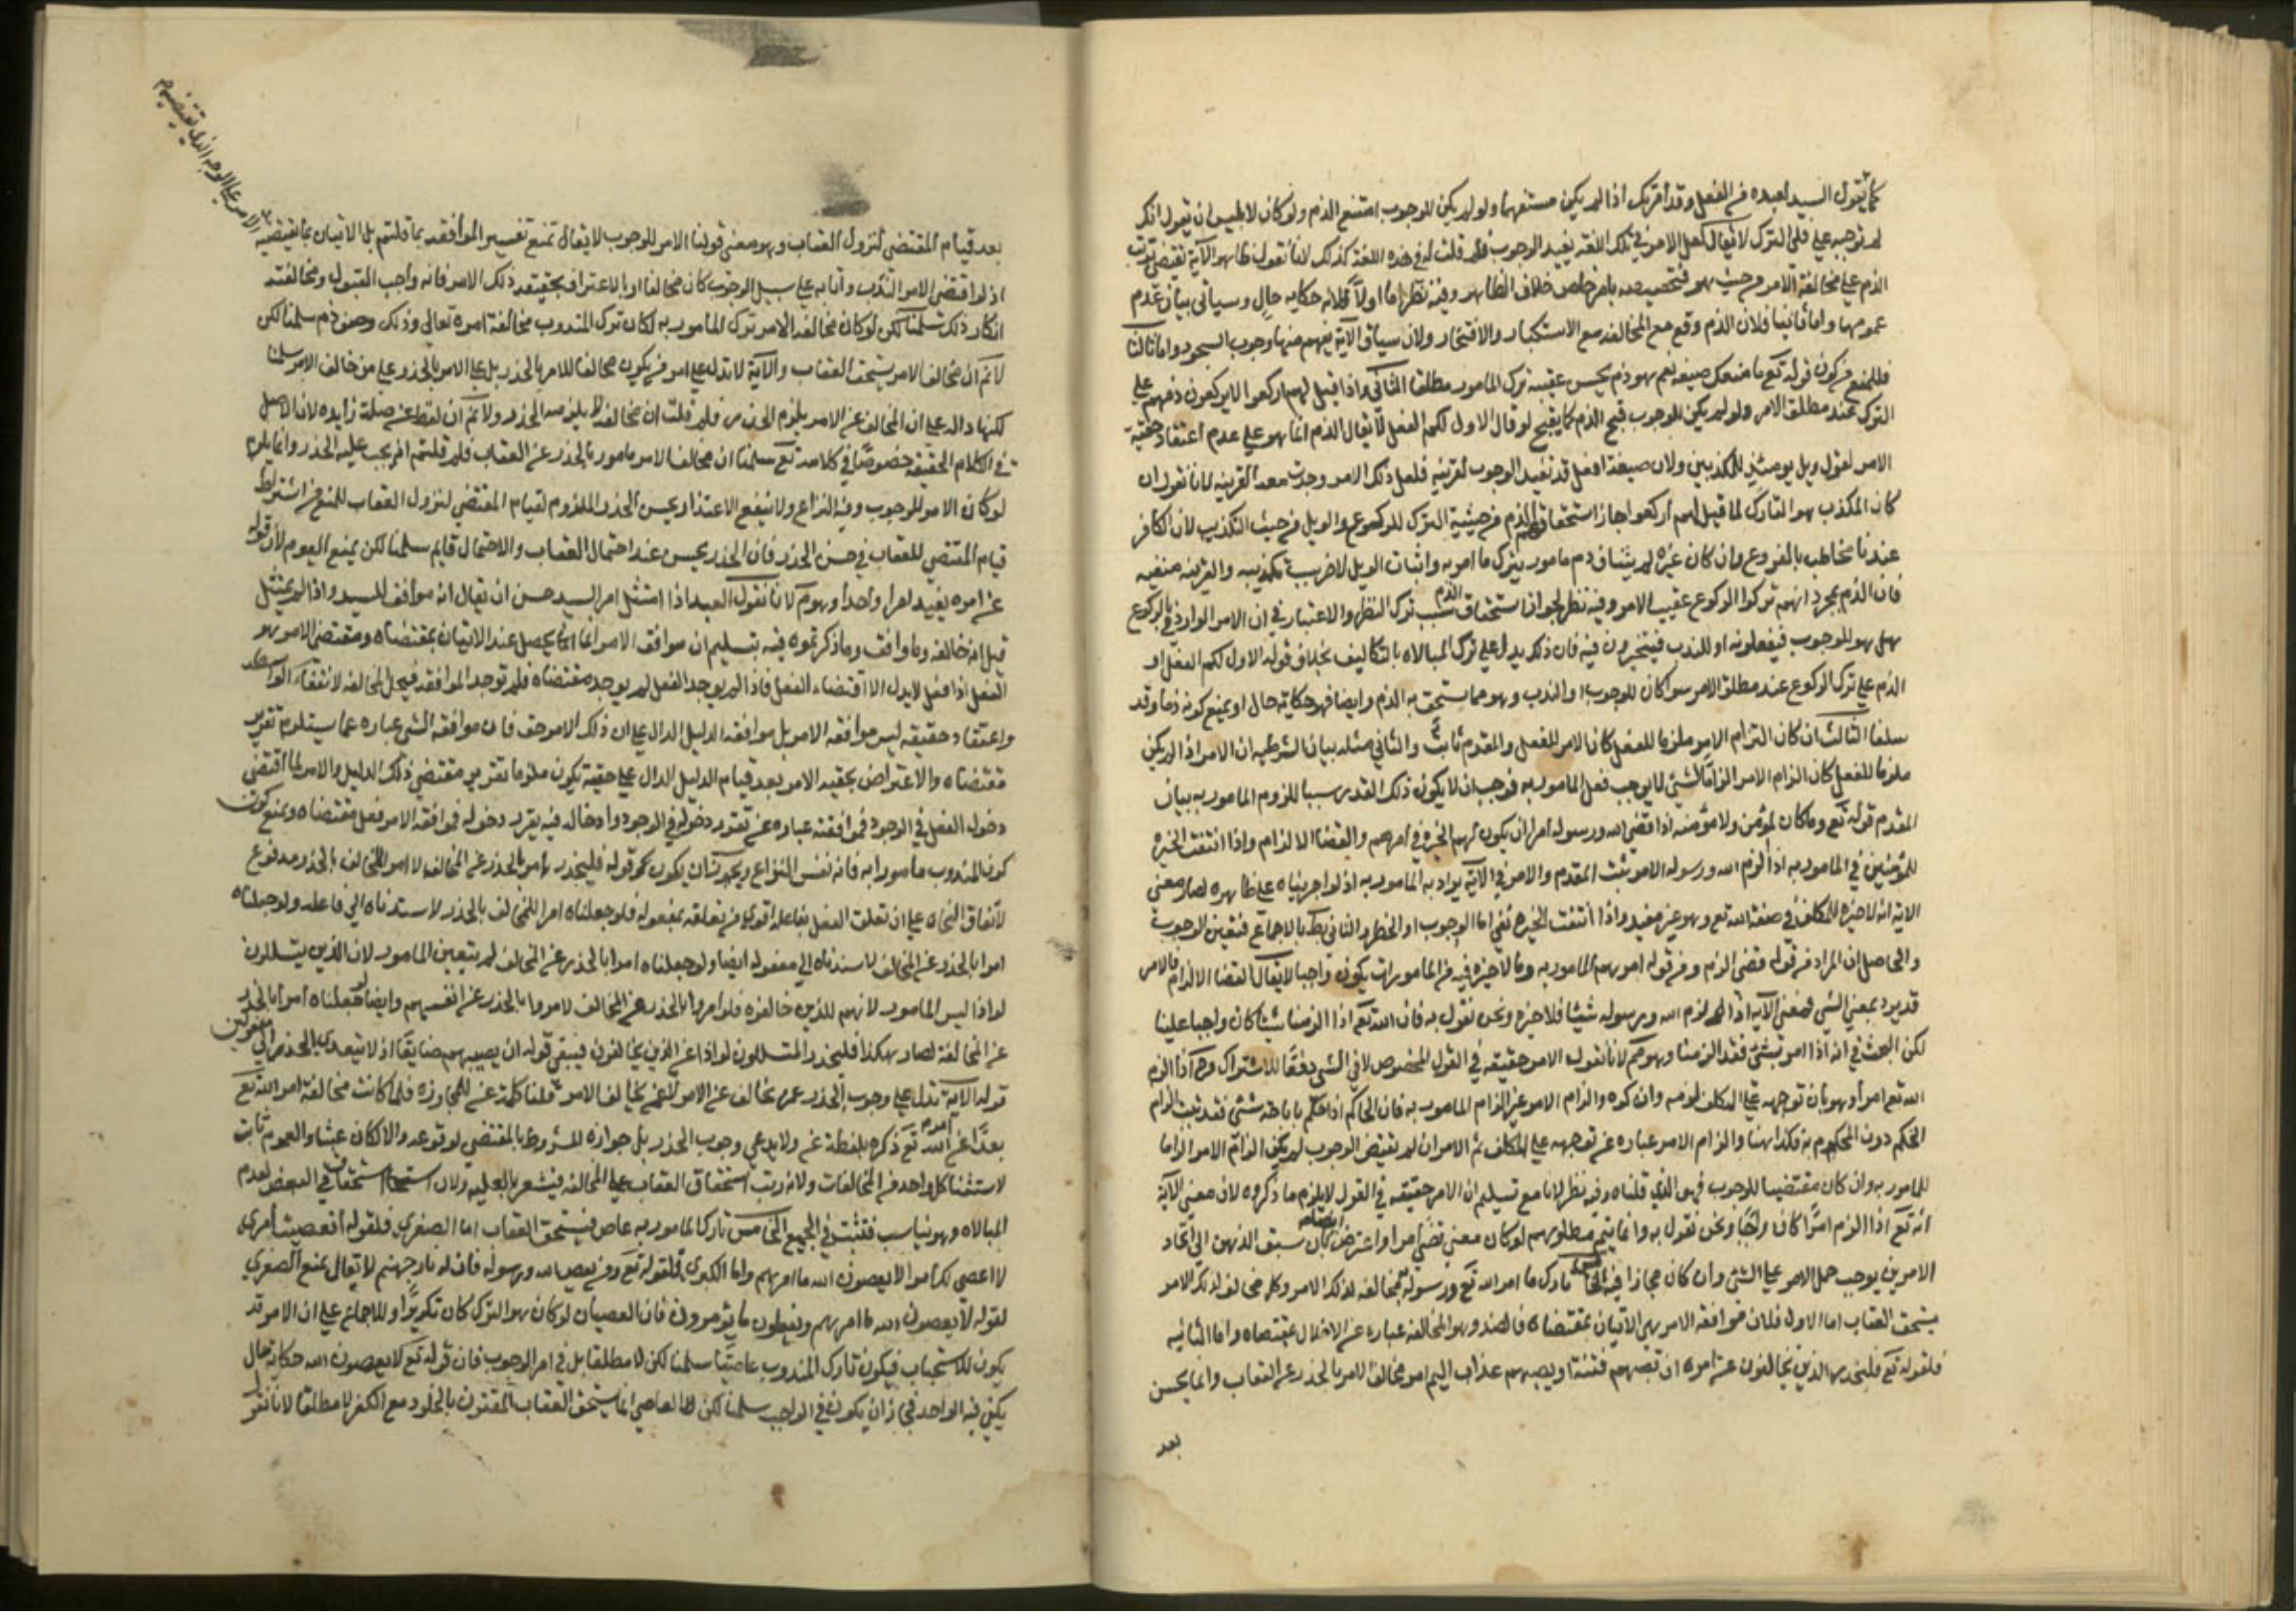 كما يقول السيد لعبده في الفعل وقد أمرتك اذا لم يكن مستفهما ولو لم يكن للوجوب امتنع الذم ولو كان لابليس ان يقول انك
لم توجبه علي فلي الترك لا يقال لعل الامر في تلك اللغة يفيد الوجوب فلم قلت انه في هذه اللغة كذلك لانا نقول ظاهر الآية يقتضي ترتب
الذم على مخالفة الامر من حيث هو فتخصيصه بامر خاص خلاف الظاهر وفيه نظر اما اولا فلانه حكاية حال وسيأتي بيان عدم
عمومها واما ثانيا فلان الذم وقع مع المخالفة مع الاستكبار والافتخار ولان سياق الآية يفهم منها وجوب السجود واما ثالثا
فللمنع من كون قوله تع ما منعك صيغة نعم هو ذم يحسن عقيبه ترك المامور مطلقا الثاني واذا قيل لهم اركعوا لا يركعون ذمهم على
الترك عند مطلق الامر ولو لم يكن للوجوب قبح الذم كما يقبح لو قال الاول لكم الفعل لا يقال الذم انما هو على عدم اعتقاد حقية
الامر لقوله ويل يومئذ للمكذبين ولان صيغة افعل قد تفيد الوجوب لقرينة فلعل ذلك الامر وجدت معه القرينة لانا نقول ان
كان المكذب هو التارك لما قيل لهم اركعوا جاز استحقاق الذم من حيثية الترك للركوع والويل من حيث التكذيب لان الكافر
عندنا مخاطب بالفروع وان كان غيره لم يتناف ذم مامور بترك ما امر به واثبات الويل لاخر بسبب تكذيبه والقرينة منفية
فان الذم بمجرد انهم تركوا الركوع عقيب الامر وفيه نظر لجواز استحقاق الذم بسبب ترك النظر والاعتبار في ان الامر الوارد في الركوع
هل هو للوجوب فيفعلونه او للندب فيتخيرون فيه فان ذلك يدل على ترك المبالاة بالتكاليف بخلاف قوله الاول لكم الفعل او
الذم على ترك الركوع عند مطلق الامر سوا كان للوجوب او الندب وهو مما يستحق به الذم وايضا فهو حكاية حال او يمنع كونه ذما وقد
سلف الثالث ان كان الزام الامر ملزما للفعل كان الامر للفعل والمقدم ثابت والثاني مثله بيان الشرطية ان الامر اذا لم يكن
ملزما للفعل كان الزام الامر الزاما لشئ لا يوجب فعل المامور به فوجب ان لا يكون ذلك القدر سببا للزوم المامور به بيان
المقدم قوله تع وما كان لمؤمن ولا مؤمنة اذا قضى الله ورسوله امرا ان يكون لهم الخيرة في امرهم والقضا الالزام واذا انتفت الخيرة
للمؤمنين في المامور به اذا الزم الله ورسوله الامر ثبت المقدم والامر في الآية يراد به المامور به اذ لو اجريناه على ظاهره لصار معنى
الاية انه لا خيرة للمكلف في صفة الله تع وهو غير مفيد واذا انتفت الخيرة بقي اما الوجوب او الحظر والثاني بط بالاجماع فتعين الوجوب
والحاصل ان المراد من قوله قضى الزم ومن قوله امرهم المامور به وما لا خيرة فيه من المامورات يكون واجبا لا يقال القضا الالزام والامر
قد يرد بمعنى الشي فمعنى الآية اذا الزم الله ورسوله شيئا فلا خيرة ونحن نقول به فان الله تع اذا الزمنا شيئا كان واجبا علينا
لكن البحث في انه اذا امر بشئ فقد الزمنا وهو مم لانا نقول الامر حقيقة في القول المخصوص لا في الشئ دفعا للاشتراك وح اذا الزم
الله تع امرا وهو بان توجهه على المكلف لزمه وان كره والزام الامر غير الزام المامور به فان الحاكم اذا حكم باباحة شئ فقد ثبت الزام
الحكم دون المحكوم به فكذا هنا والزام الامر عبارة عن توجهه على المكلف ثم الامر ان لم يقتض الوجوب لم يكن الزام الامر الزاما
للمامور به وان كان مقتضيا للوجوب فهو الذي قلناه وفيه نظر لانا مع تسليم ان الامر حقيقة في القول لا يلزم ما ذكروه لان معنى الآية
انه تع اذا الزم امرا كان واجبا ونحن نقول به وانما يتم مطلوبهم لو كان معنى قضى امرا واعترض بان سبق الذهن الى اتحاد
الامرين يوجب حمل الامر على الشئ وان كان مجازا فيه الخامس تارك ما امر الله تع ورسوله مخالف لذلك الامر وكل مخالف لذلك الامر
يستحق العقاب اما الاول فلان موافقة الامر هي الاتيان بمقتضاه والضد وهو المخالفة عبارة عن الاخلال بمقتضاه واما الثانية
فلقوله تع فليحذر الذين يخالفون عن امره ان تصيبهم فتنة او يصيبهم عذاب اليم امر مخالف الامر بالحذر عن العقاب وانما يحسن
بعد
بعد قيام المقتضي لنزول العقاب وهو معنى قولنا الامر للوجوب لا يقال نمنع تفسير الموافقة بما قلتم بل الاتيان بما يقتضيه
الامر على الوجه الذي يقتضيه
اذ لو اقتضى الامر الندب واتا به على سبيل الوجوب كان مخالفا او الاعتراف بحقيقة ذلك الامر فانه واجب القبول ومخالفته
انكار ذلك سلمنا لكن لو كان مخالف الامر ترك المامور به لكان ترك المندوب مخالفة امره تعالى وذلك وصف ذم سلمنا لكن
لا نم ان مخالف الامر يستحق العقاب والآية لا تدل على امر من يكون مخالفا للامر بالحذر بل على الامر بالحذر عن من خالف الامر سلمنا
لكنها دالة على ان المخالف عن الامر يلزم الحذر فلم قلت ان مخالف لا يلزمه الحذر ولا نم ان لفظة عن صلة زايدة لان الاصل
في الكلام الحقيقة خصوصا في كلامه تع سلمنا ان مخالف الامر مامور بالحذر عن العقاب فلم قلتم انه يجب عليه الحذر وانما يلزم
لو كان الامر للوجوب وفيه النزاع ولا ينفع الاعتذار بحسن الحذر الملزوم لقيام المقتضي لنزول العقاب للمنع من اشتراط
قيام المقتضي للعقاب في حسن الحذر فان الحذر يحسن عند احتمال العقاب والاحتمال قايم سلمنا لكن يمنع العموم لان قوله
عن امره يفيد امرا واحدا وهو مم لانا نقول العبد اذا امتثل امر السيد حسن ان يقال انه موافق للسيد واذا لم يمتثل
قيل انه خالفه وما وافقه وما ذكرتموه فيه تسليم ان موافقة الامر انما يحصل عند الاتيان بمقتضاه ومقتضى الامر هو
الفعل اذ افعل لا يدل الا اقتضاء الفعل فاذا لم يوجد الفعل لم يوجد مقتضاه فلم توجد الموافقة فيحصل المخالفة لانتفاء الواسطة
واعتقاد حقيقته ليس موافقة الامر بل موافقة الدليل الدال على ان ذلك الامر حق فان موافقة الشئ عبارة عما يستلزم تقرير
مقتضاه والاعتراض بحقية الامر بعد قيام الدليل الدال على حقية يكون ملزما تقرير مقتضي ذلك الدليل والامر لما اقتضى
دخول الفعل في الوجود فموافقته عبارة عن تقرير دخوله في الوجود وادخاله فيه يقرر دخوله فموافقة الامر فعل مقتضاه ونمنع كون
كون المندوب مامورا به فانه نفس النزاع ويجوز ان يكون قوله فليحذر امر بالحذر عن المخالف لا امر للمخالف بالحذر مدفوع
لاتفاق النحاة على ان تعلق الفعل بفاعله اقوى من تعلقه بمفعوله فلو جعلناه امرا للمخالف بالحذر لاسندناه الى فاعله ولو جعلناه
امرا بالحذر عن المخالف لاسندناه الى مفعوله ايضا ولو جعلناه امرا بالحذر عن المخالف لم يتعين المامور لان الذين يتسللون
لواذا ليس المامور لانهم للذين خالفوه فلو امروا بالحذر عن المخالف لامروا بالحذر عن انفسهم وايضا لو جعلناه امرا بالحذر
عن المخالفة لصار هكذا فليحذر المتسللون لواذا عن الذين يخالفون فيبقى قوله ان يصيبهم ضايعا اذ لا يتعدى الحذر الى مفعولين
قوله الآية تدل على وجوب الحذر عمن يخالف عن الامر لا عمن يخالف الامر قلنا كلمة عن للمجاوزة فلما كانت مخالفة امر الله تع
بعدا عن امره تع ذكره بلفظة عن ولا يدعي وجوب الحذر بل جوازه المشروط بالمقتضي لوقوعه والا لكان عبثا والعموم ثابت
لاستثنا كل واحد من المخالفات ولانه رتب استحقاق العقاب على المخالفة فيشعر بالعلية ولان استحقاق في البعض لعدم
المبالاة وهو يناسب فتثبت في الجميع الخامس تارك المامور به عاص فيستحق العقاب اما الصغرى فلقوله افعصيت امري
لا اعصي لك امرا لا يعصون الله ما امرهم واما الكبرى فلقوله تع ومن يعص الله ورسوله فان له نار جهنم لا يقال نمنع الصغرى
لقوله لا يعصون الله ما امرهم ويفعلون ما يؤمرون فان العصيان لو كان هو الترك كان تكريرا وللاجماع على ان الامر قد
يكون للاستحباب فيكون تارك المندوب عاصيا سلمنا لكن لا مطلقا بل في امر الوجوب فان قوله تع لا يعصون الله حكاية حال
يكفي فيه الواحد فجاز ان يكون في الواجب سلمنا لكن العاصي انما يستحق العقاب المقترن بالخلود مع الكفر لا مطلقا لانا نقول